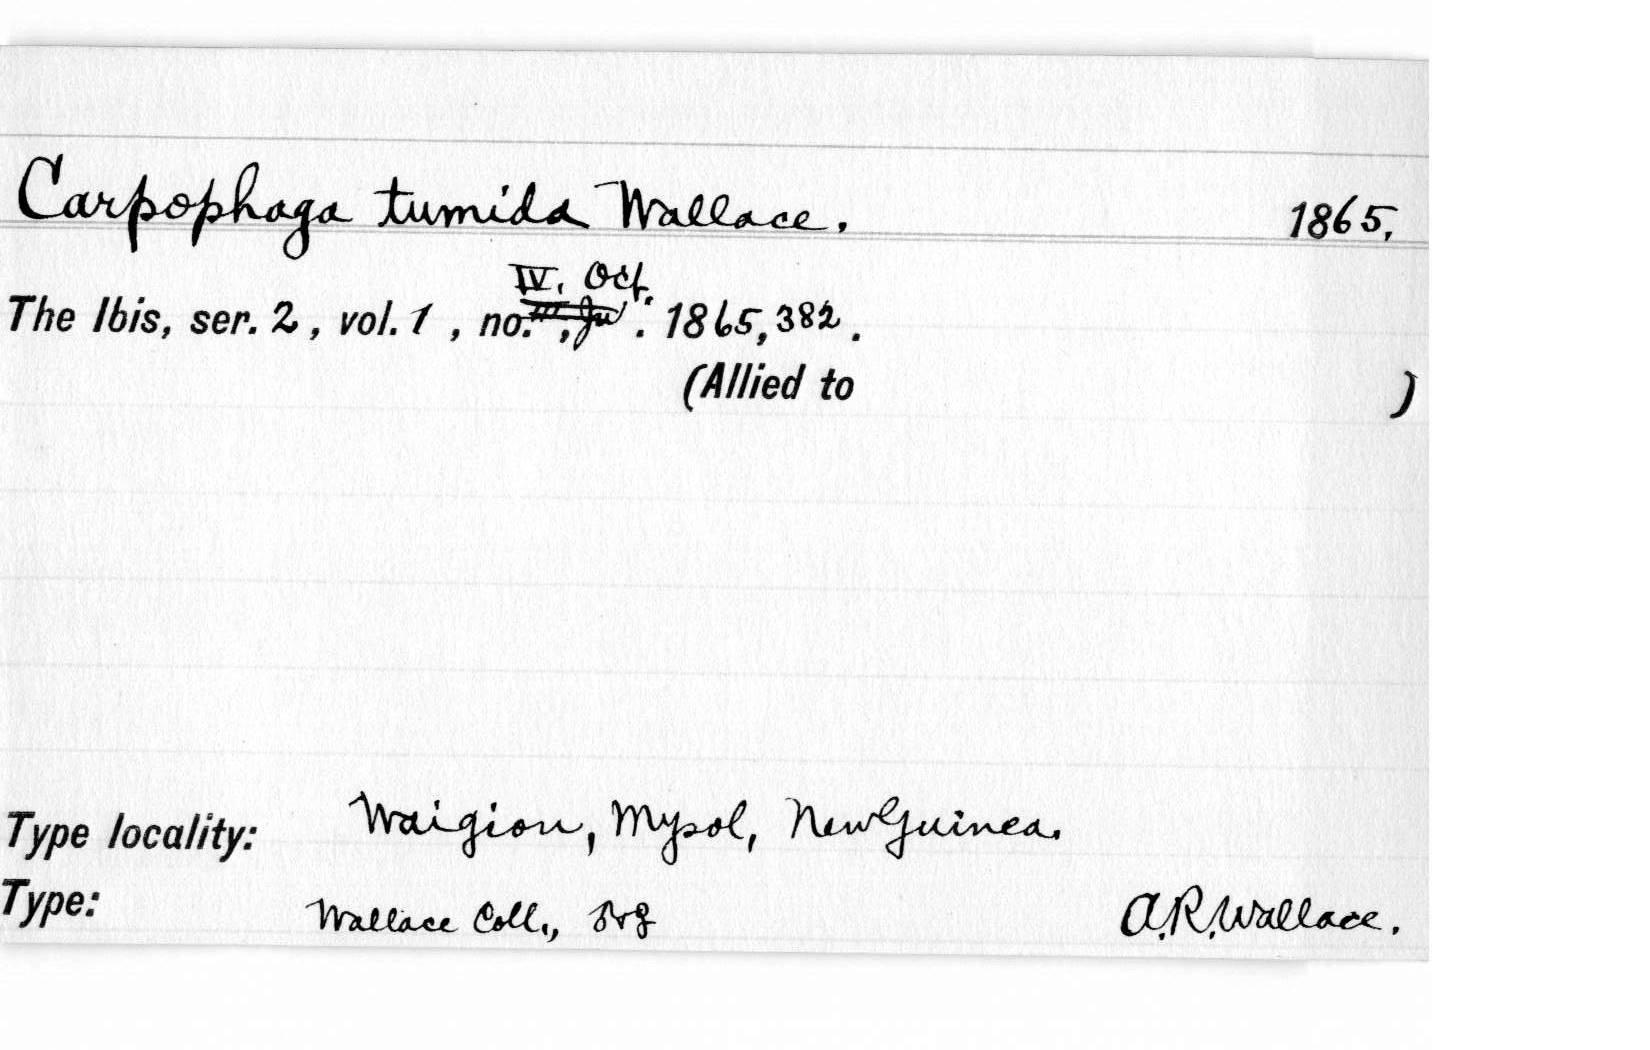 Carpophaga tumida Wallace. 1865.
IV, Oct.
The Ibis, ser. 2, vol. 1, no. III, Ju. 1865, 382.
(Allied to )
Type locality: Waigiou, Mysol, New Guinea.
Type: Wallace Coll., ♂♀ A.R. Wallace.